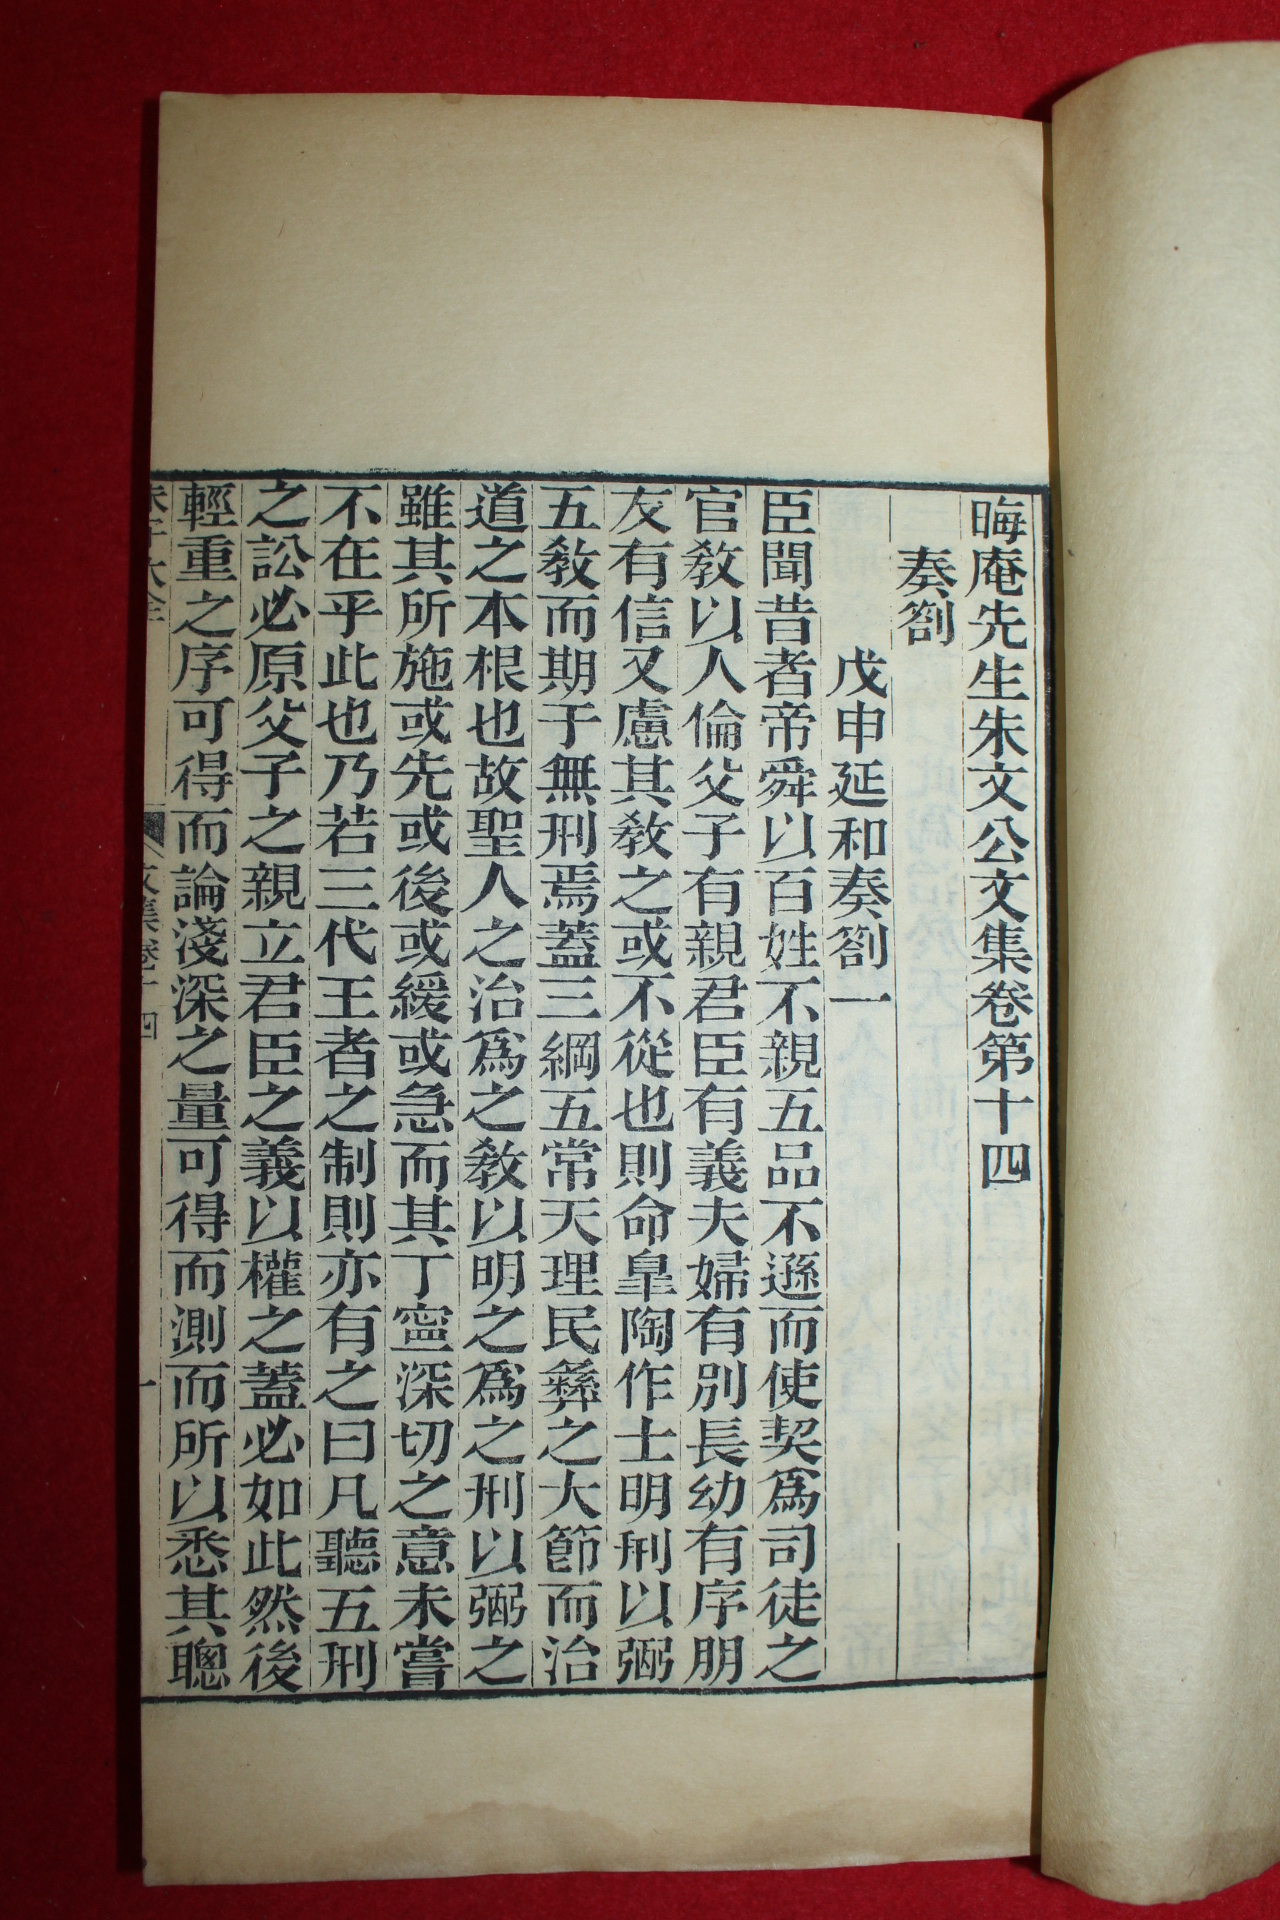 晦庵先生朱文公文集卷第十四
奏劄
戊申延和奏劄一
臣聞昔者帝舜以百姓不親五品不遜而使契爲司徒之
官敎以人倫父子有親君臣有義夫婦有別長幼有序朋
友有信又慮其敎之或不從也則命臯陶作士明刑以弼
五敎而期于無刑焉蓋三綱五常天理民彝之大節而治
道之本根也故聖人之治爲之敎以明之爲之刑以弼之
雖其所施或先或後或緩或急而其丁寧深切之意未嘗
不在乎此也乃若三代王者之制則亦有之曰凡聽五刑
之訟必原父子之親立君臣之義以權之蓋必如此然後
輕重之序可得而論淺深之量可得而測而所以悉其聰
朱子大全
文集卷十四
一